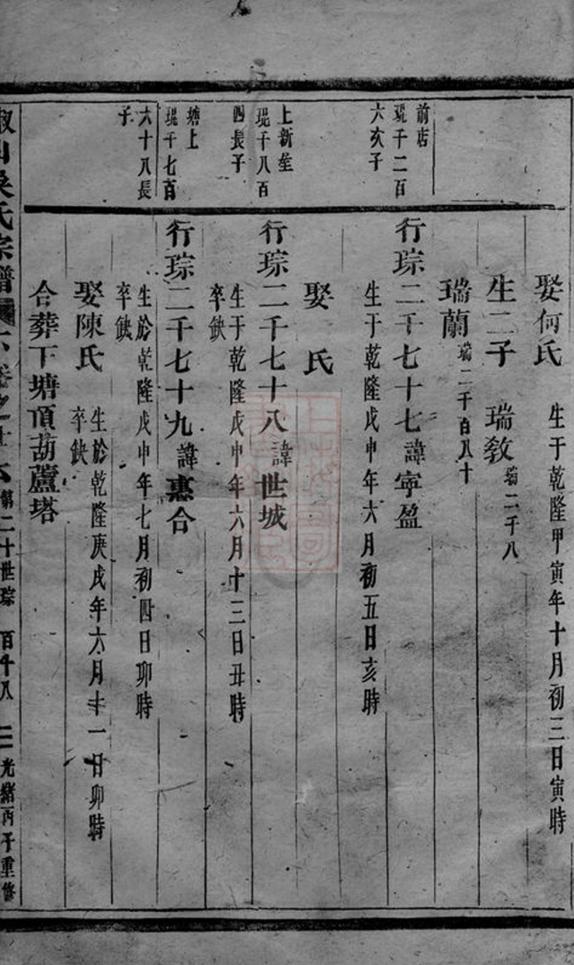 娶何氏
生于乾隆甲寅年十月初三日寅時
生二子 瑞敎 瑞二千八
瑞蘭 瑞二千百八十
前店
琉千二百
六亥子
行琮二千七十七諱寕盈
生于乾隆戊申年六月初五日亥時
娶 氏
上新埀
琨千八百
四長子
行琮二千七十八諱世城
生于乾隆戊申年六月十三日丑時
卒缺
塘上
琨千七百
六十八長
子
行琮二千七十九諱惠合
生於乾隆戊申年七月初四日卯時
卒缺
娶陳氏
生於乾隆庚戌年六月十一日卯時
卒缺
合葬下塘頂葫蘆塔
吳氏宗譜
卷之十六
第二十世琮
百廿八
光緒丙子重修